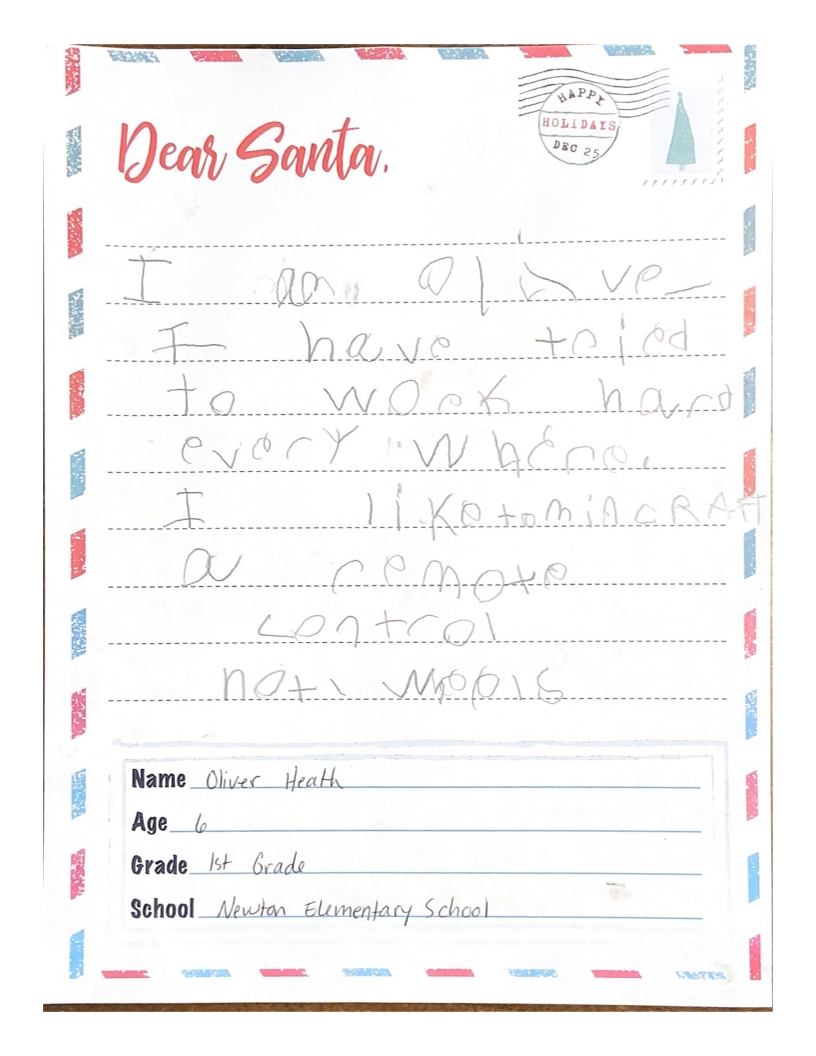 HAPPY
HOLIDAYS
DEC 25
Dear Santa,
I am Olive
I have tried
to work hard
every where.
I like to minCRAFt
a remote
control
not
Name Oliver Heath
Age 6
Grade 1st Grade
School Newton Elementary School